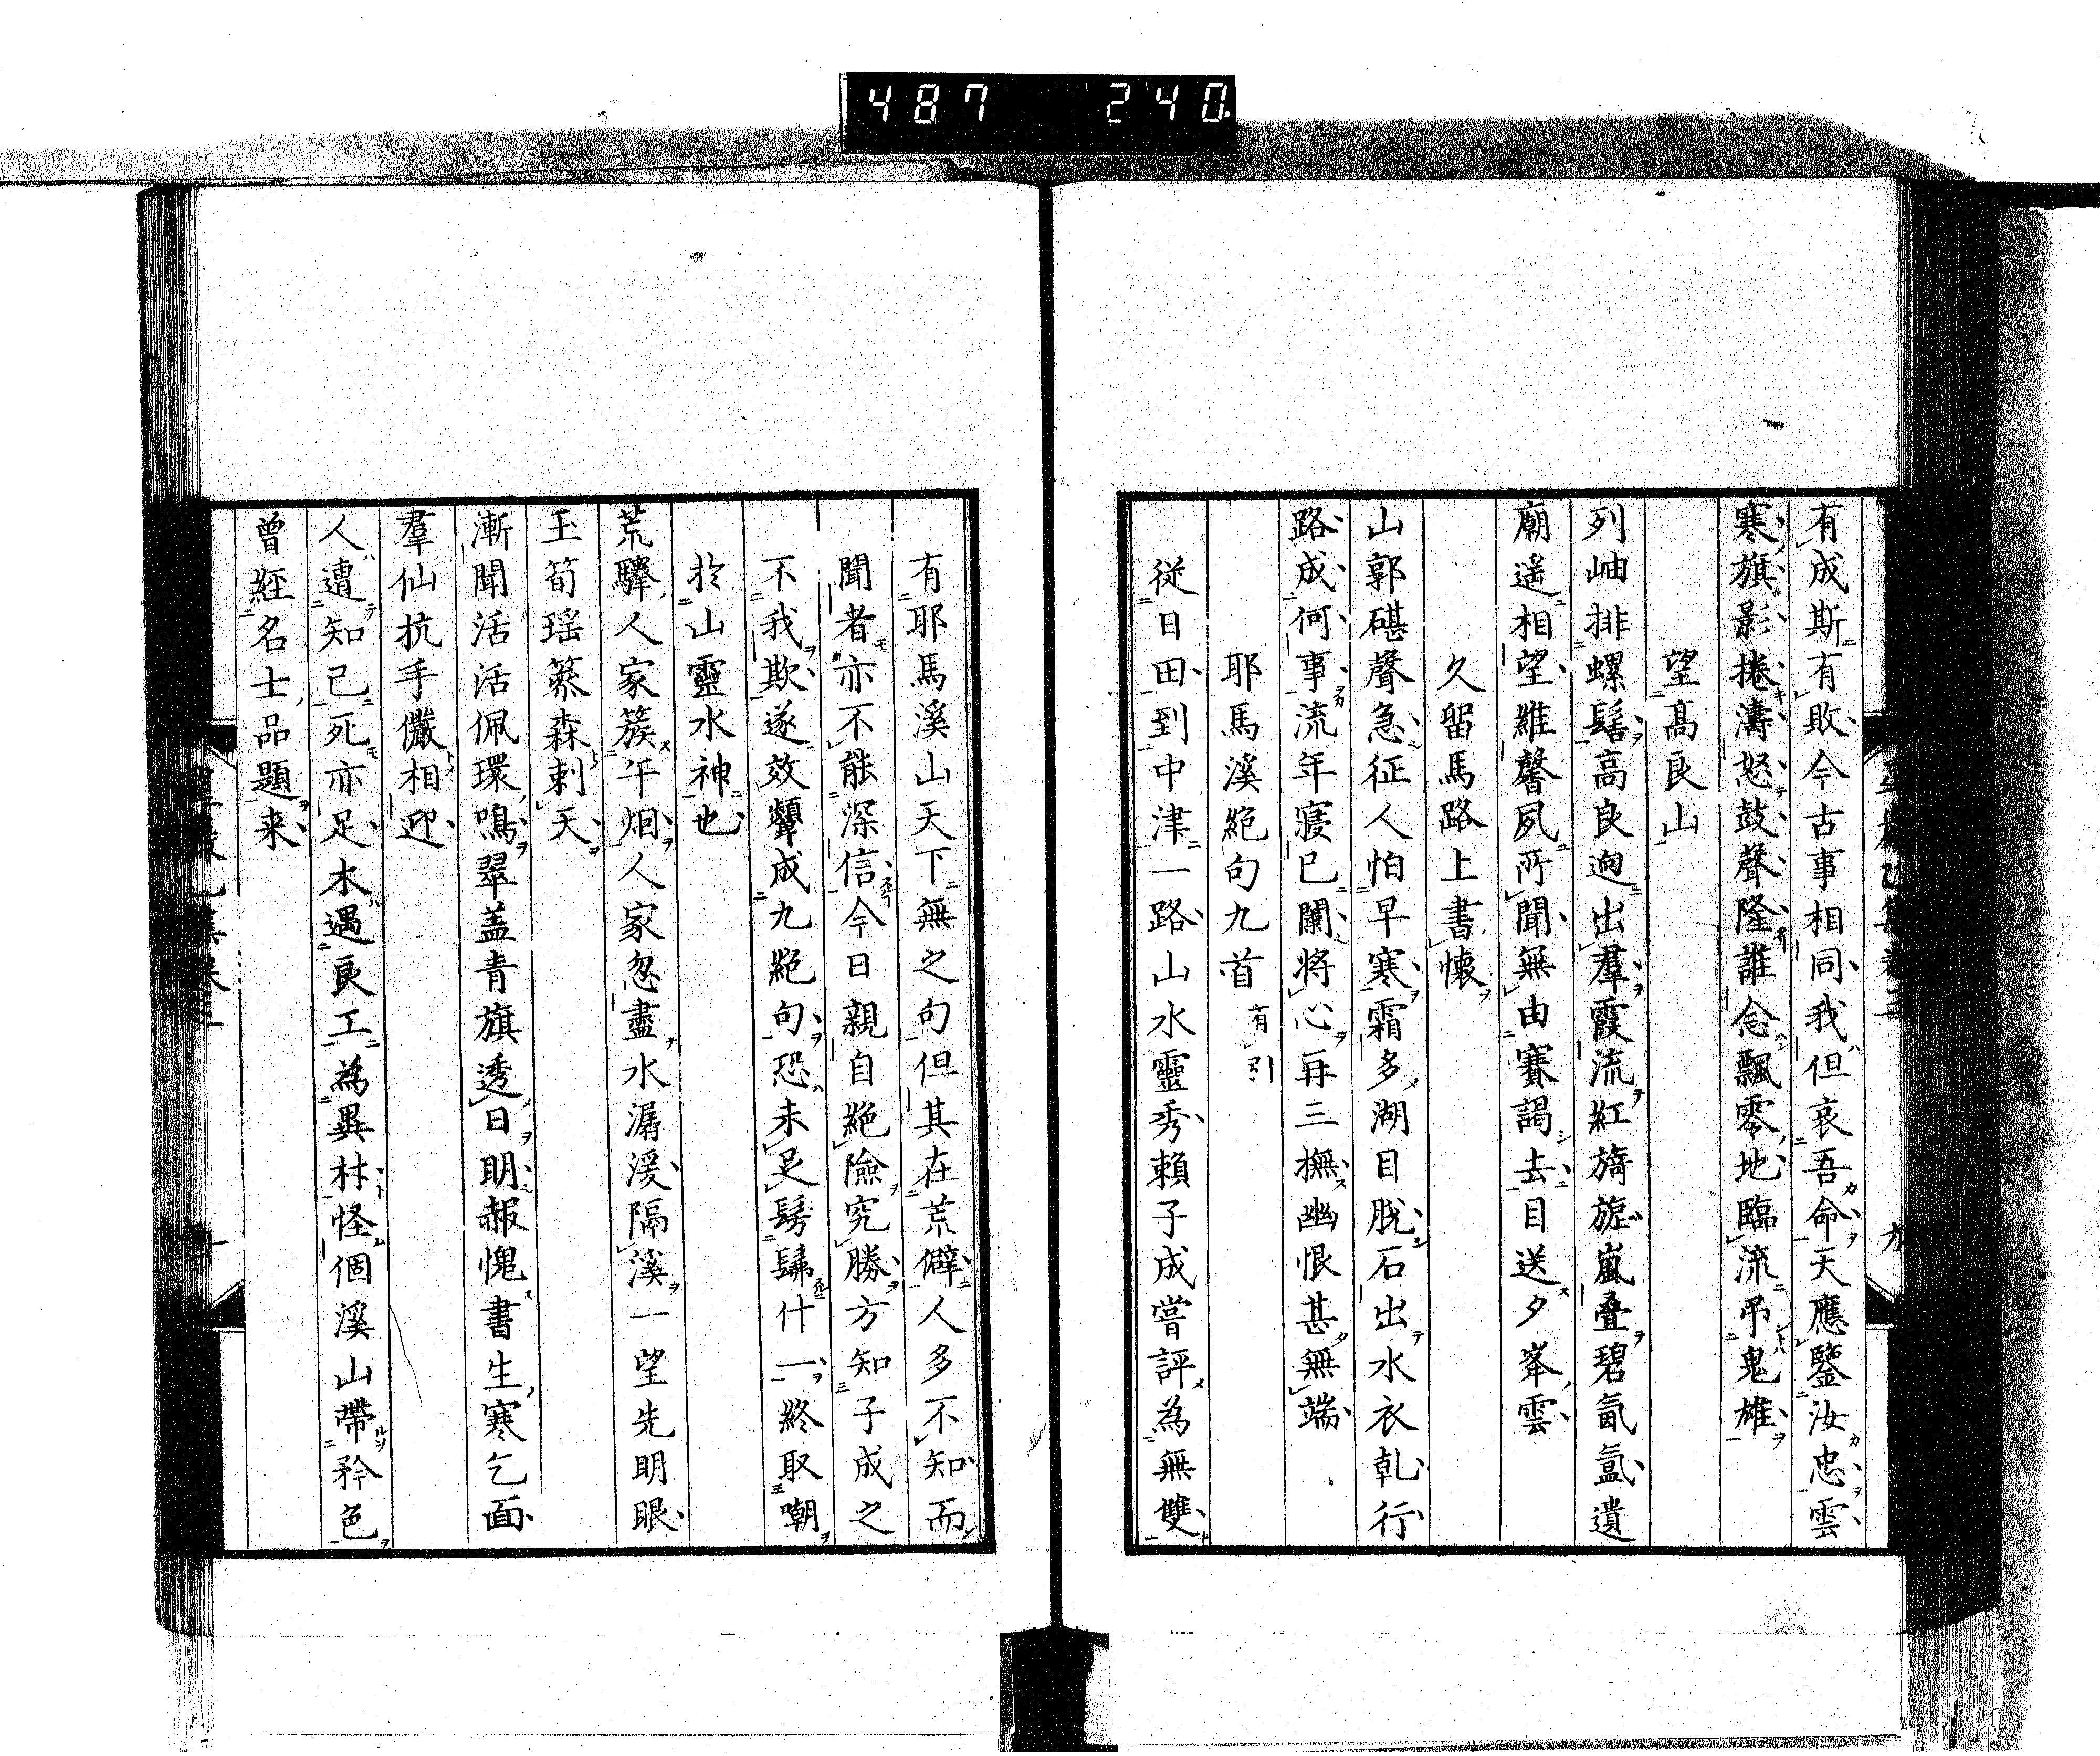 487 240
有成斯有敗今古事相同我但哀吾命天應鑒汝忠雲
寒旗影捲濤怒鼓聲隆誰念飄零地臨流吊鬼雄
望高良山
列岫排螺髻高良逈出羣霞流紅旖旎嵐疊碧氤氳遺
廟遥相望維馨夙所聞無由賽謁去目送夕峯雲
久留馬路上書懷
山郭碪聲急征人怕早寒霜多湖目脱石出水衣乾行
路成何事流年寖已闌將心再三撫幽恨甚無端
耶馬溪絶句九首 有引
従日田到中津一路山水靈秀賴子成嘗評為無雙
有耶馬溪山天下無之句但其在荒僻人多不知而
聞者亦不能深信今日親自絶險究勝方知子成之
不我欺遂效顰成九絶句恐未足髣髴什一終取嘲
於山靈水神也
荒驛人家簇午烟人家忽盡水潺湲隔溪一望先明眼
玉筍瑶簪森刺天
漸聞活活佩環鳴翠盖青旗透日明赧愧書生寒乞面
羣仙抗手儼相迎
人遭知己死亦足木遇良工為異材怪個溪山帶矜色
曾經名士品題来